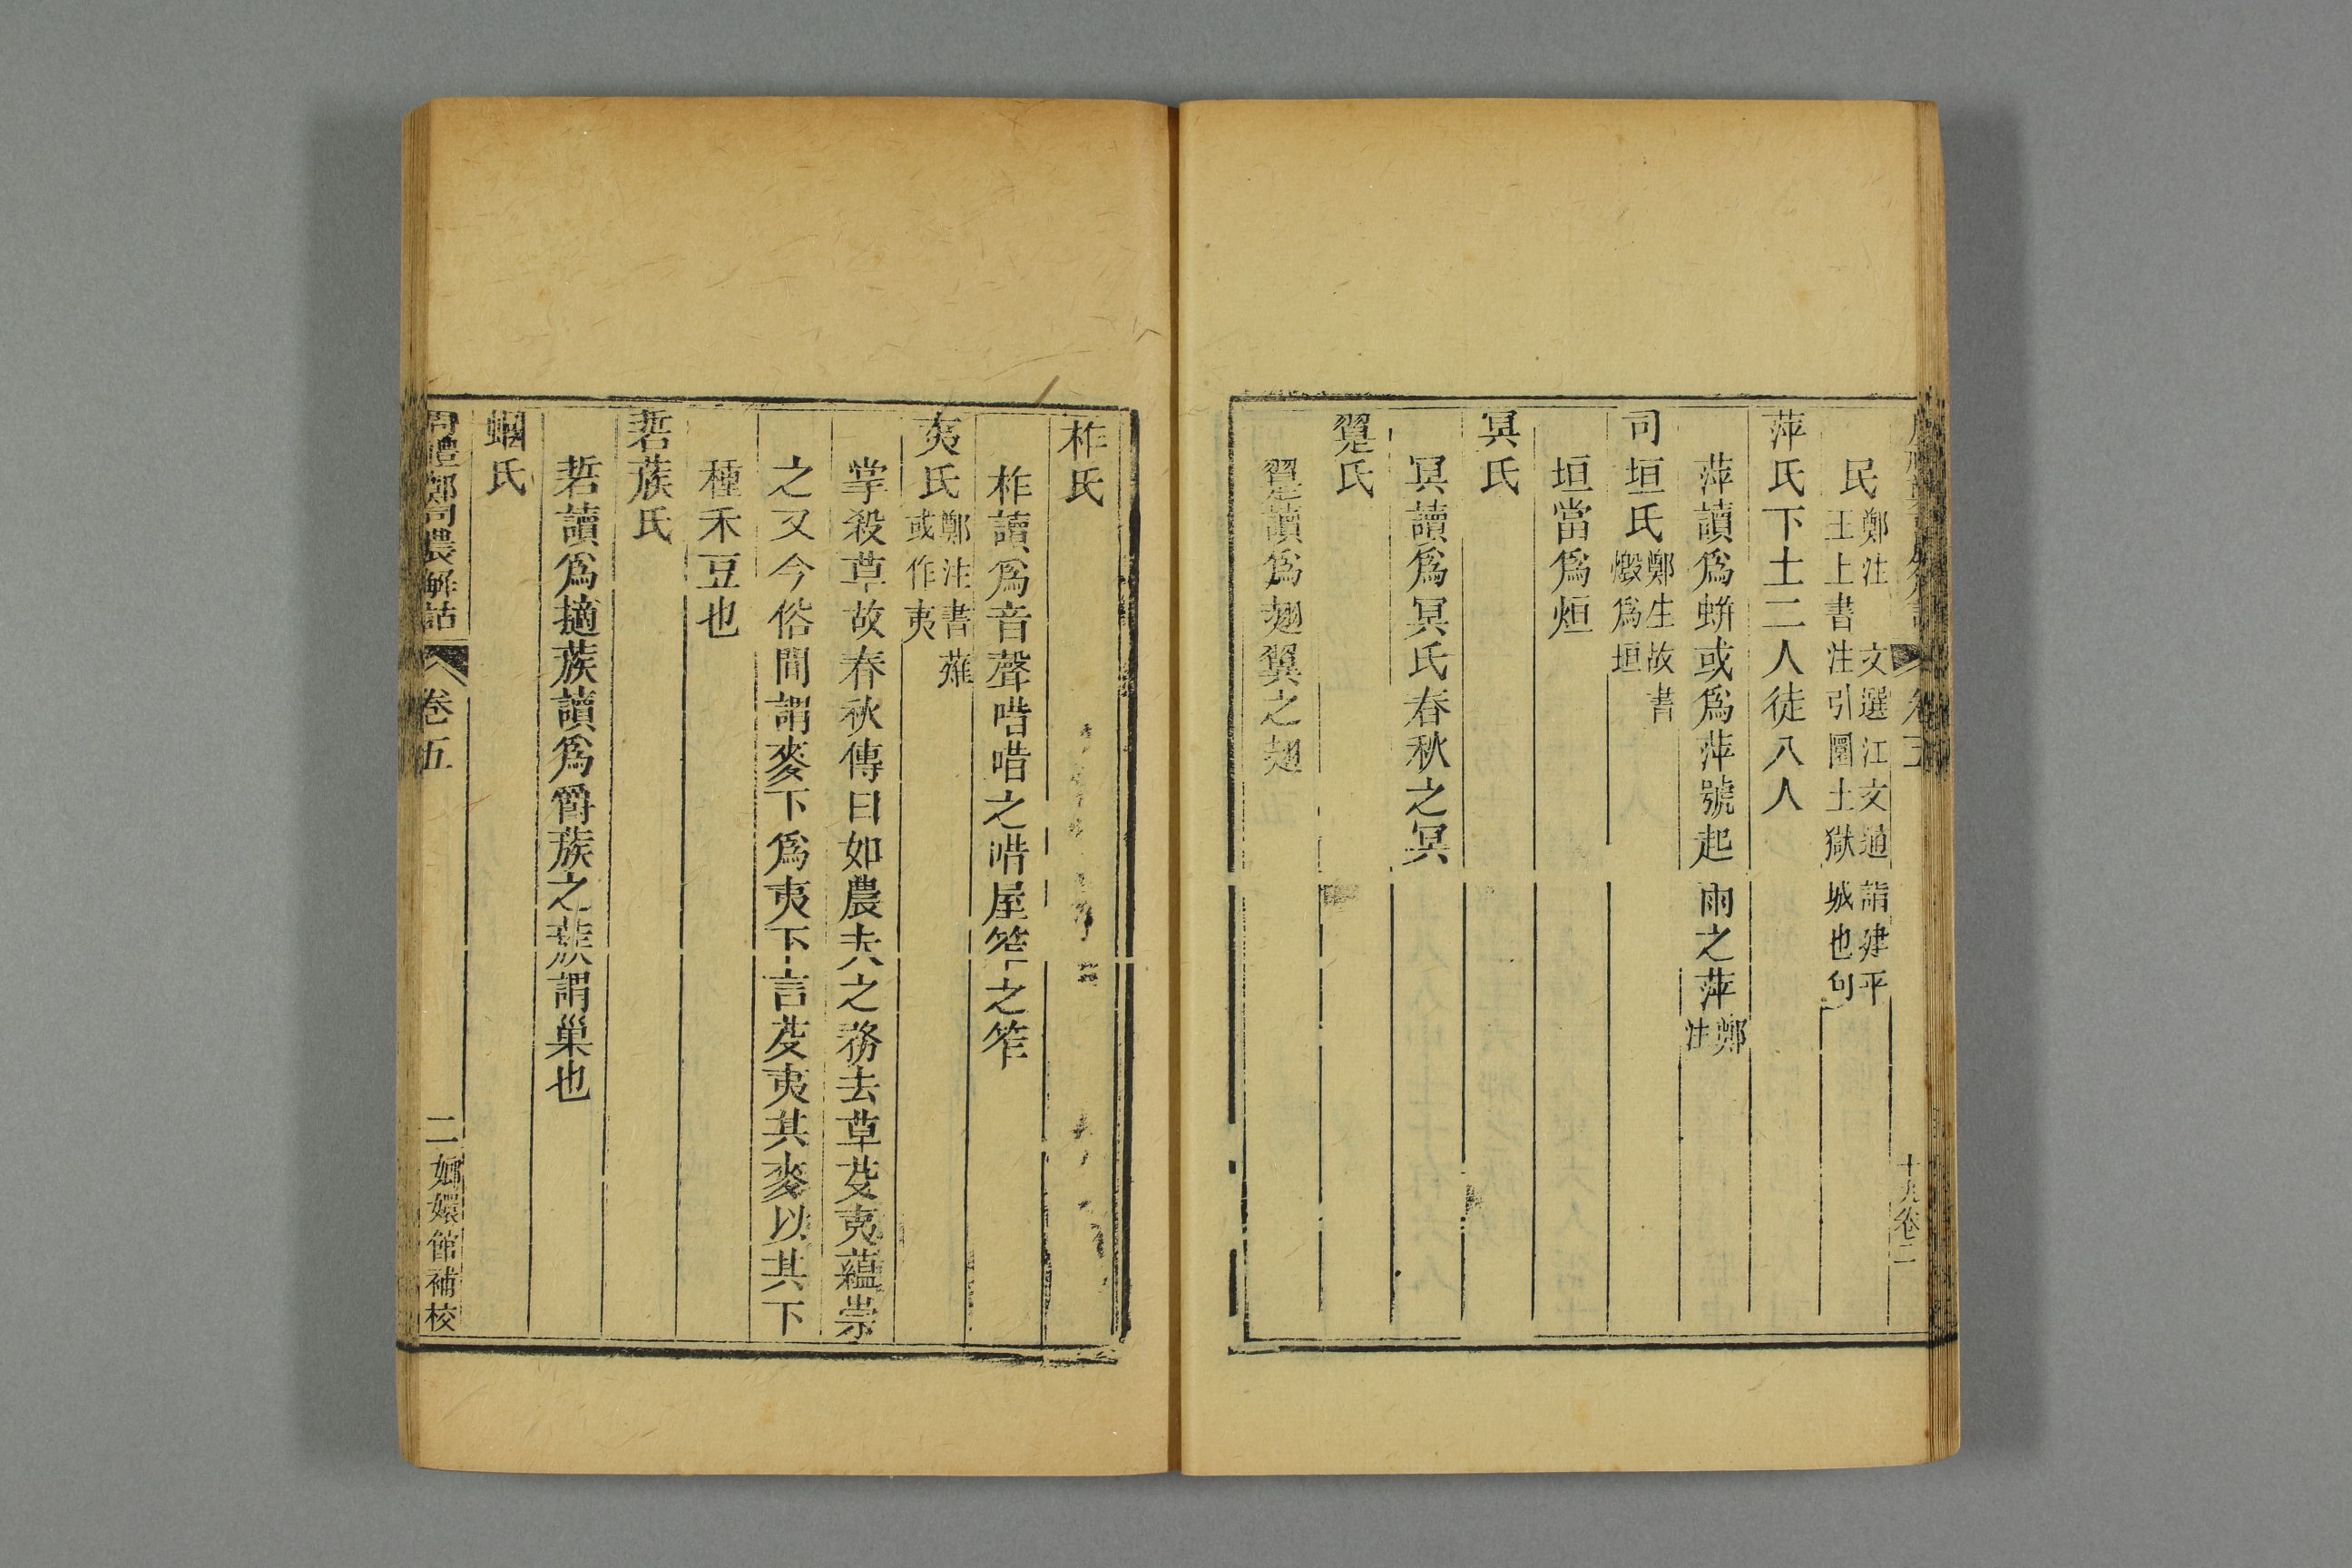 民鄭注 文選江文通詣建平
王上書注引圜土獄城也句
萍氏下士二人徒八人
萍讀爲蛢或爲萍號起雨之萍鄭
注
司垣氏鄭生故書
燬爲垣
垣當爲烜
冥氏
冥讀爲冥氏春秋之冥
翨氏
翨讀爲翅翼之翅
十九卷二
柞氏
柞讀爲音聲唶唶之唶屋笮之笮
夷氏鄭注書薙
或作夷
掌殺草故春秋傳曰如農夫之務去草芟夷蘊崇
之又今俗間謂麥下爲夷下言芟夷其麥以其下
種禾豆也
硩蔟氏
硩讀爲擿蔟讀爲爵蔟之蔟謂巢也
蟈氏
周禮鄭司農解詁 卷五 二 嫏嬛館補校